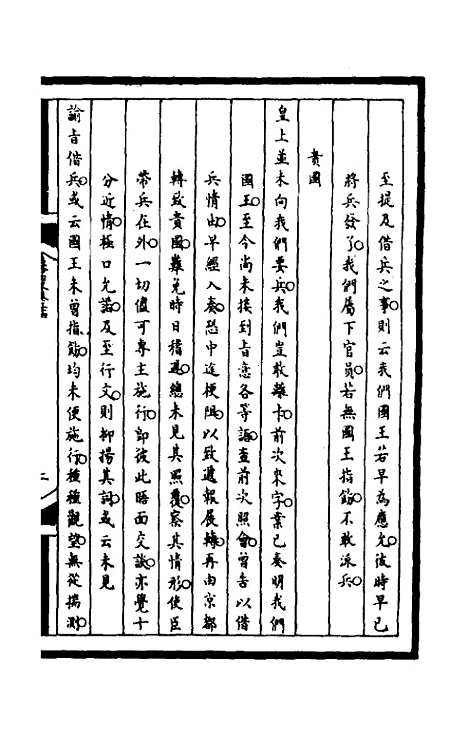 至提及借兵之事則云我們國王若早為應允彼時早已
將兵發了我們屬下官員若無國王指飭不敢派兵
貴國
皇上並未向我們要兵我們豈敢離卡前次來字業已奏明我們
國王至今尚未接到旨意各等語查前次照會曾告以借
兵情由早經入奏恐中途梗阻以致遞報展轉再由京都
轉致貴國難免時日稽遲總未見其照覆察其情形使臣
帶兵在外一切儘可專主施行即彼此晤面交談亦覺十
分近情極口允諾及至行文則抑揚其詞或云未見
諭旨借兵或云國王未曾指飭均未便施行種種觀望無從揣測
二